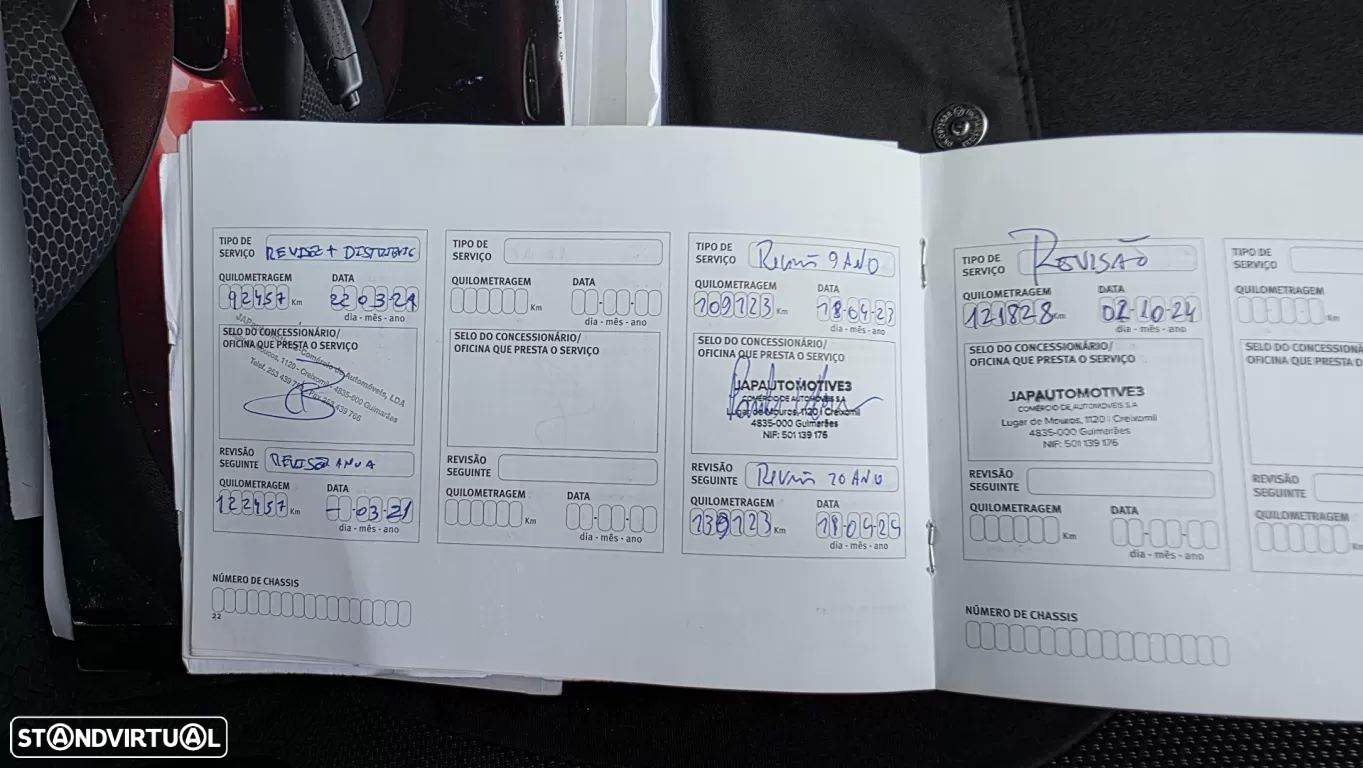 TIPO DE SERVIÇO
QUILOMETRAGEM DATA
92457 Km 22 03 21
dia - mês - ano
SELO DO CONCESSIONÁRIO/
OFICINA QUE PRESTA O SERVIÇO
Comércio de Automóveis, LDA
1120 - Creixomil - 4835-000 Guimarães
Telef. 253 439 Fax 253 439 766
REVISÃO SEGUINTE
QUILOMETRAGEM DATA
122457 Km 03-21
dia - mês - ano
NÚMERO DE CHASSIS
22
TIPO DE SERVIÇO
QUILOMETRAGEM DATA
Km
dia - mês - ano
SELO DO CONCESSIONÁRIO/
OFICINA QUE PRESTA O SERVIÇO
REVISÃO SEGUINTE
QUILOMETRAGEM DATA
Km
dia - mês - ano
TIPO DE SERVIÇO Revisão 9 ANO
QUILOMETRAGEM DATA
109123 Km 18-04-23
dia - mês - ano
SELO DO CONCESSIONÁRIO/
OFICINA QUE PRESTA O SERVIÇO
JAPAUTOMOTIVE3
COMÉRCIO DE AUTOMÓVEIS SA
Lugar de Mouros, 1120 | Creixomil
4835-000 Guimarães
NIF: 501 139 176
REVISÃO SEGUINTE
QUILOMETRAGEM DATA
139123 Km 18-04-24
dia - mês - ano
TIPO DE SERVIÇO REVISÃO
QUILOMETRAGEM DATA
121828 Km 02-10-24
dia - mês - ano
SELO DO CONCESSIONÁRIO/
OFICINA QUE PRESTA O SERVIÇO
JAPAUTOMOTIVE3
COMÉRCIO DE AUTOMÓVEIS S.A
Lugar de Mouros, 1120 | Creixomil
4835-000 Guimarães
NIF: 501 139 176
REVISÃO SEGUINTE
QUILOMETRAGEM DATA
Km
dia - mês - ano
NÚMERO DE CHASSIS
TIPO DE SERVIÇO
QUILOMETRAGEM
Km
SELO DO CONCESSION
OFICINA QUE PRESTA O
REVISÃO SEGUINTE
QUILOMETRAGEM
Km
STANDVIRTUAL